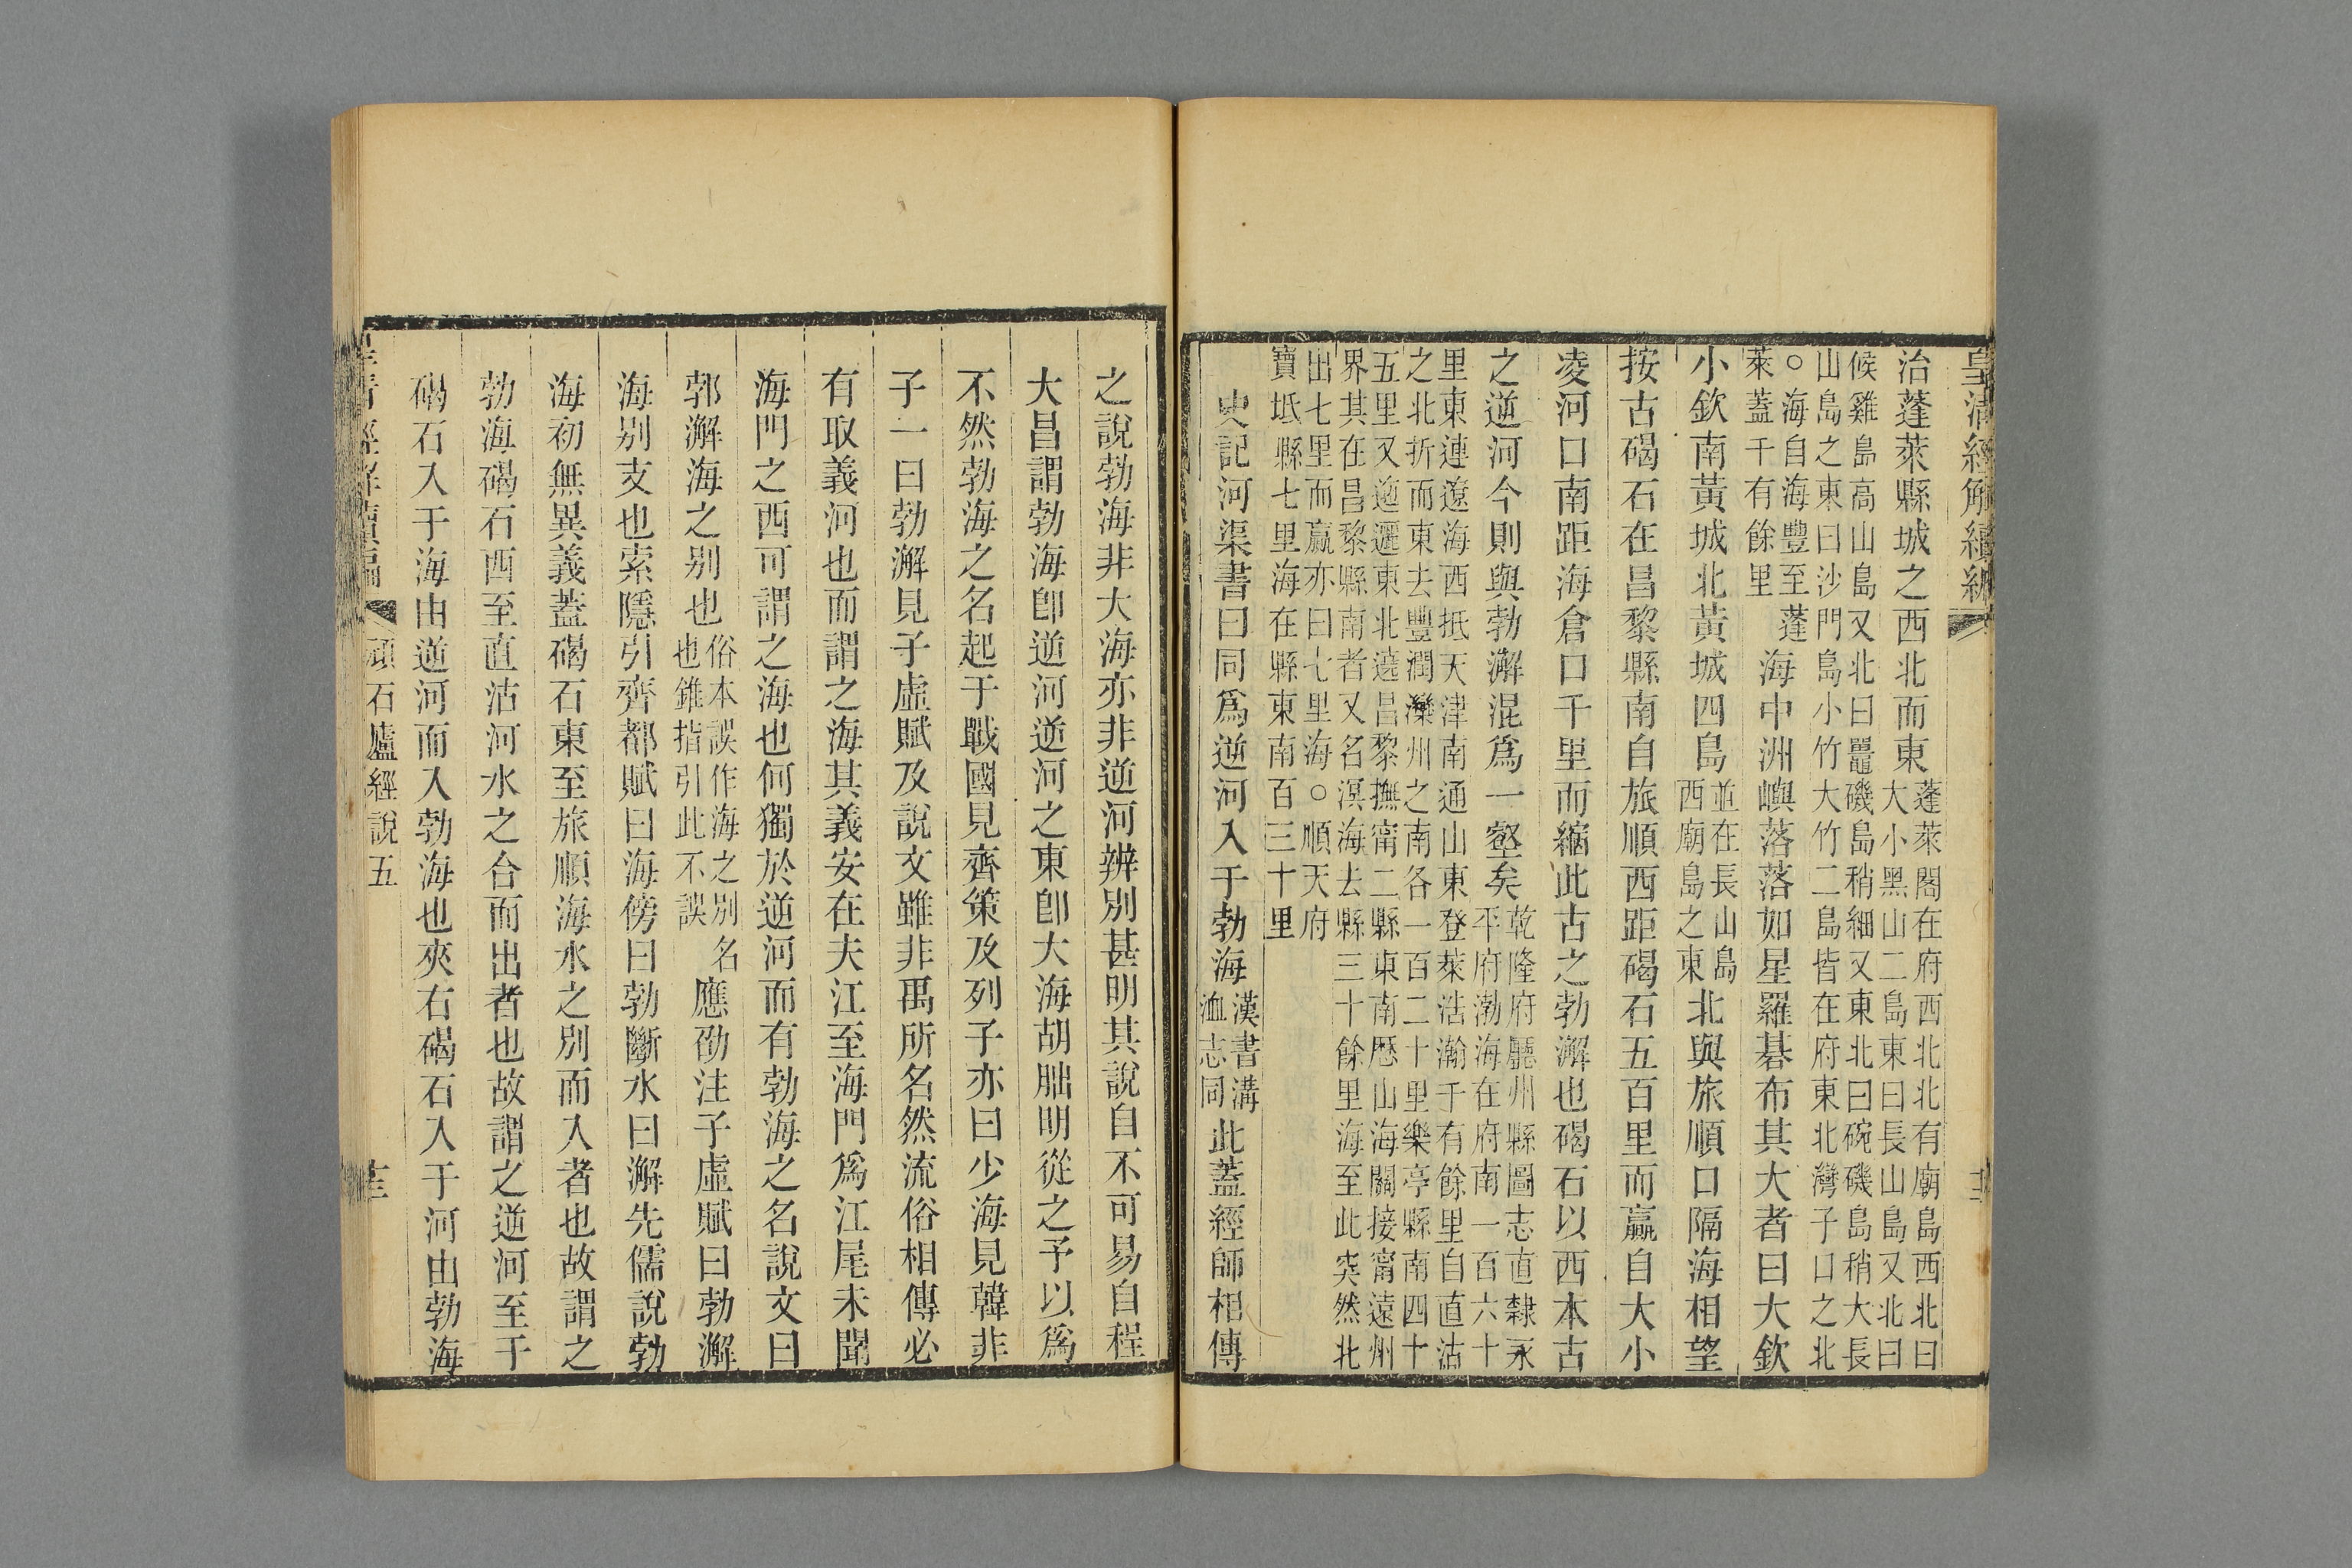 皇清經解續編
治蓬萊縣城之西北而東蓬萊閣在府西北北有廟島西北曰
大小黑山二島東曰長山島又北曰
候雞島高山島又北曰鼉磯島稍細又東北曰碗磯島稍大長
山島之東曰沙門島小竹大竹二島皆在府東北灣子口之北
○海自海豐至蓬
萊蓋千有餘里
海中洲嶼落落如星羅碁布其大者曰大欽
小欽南黃城北黃城四島並在長山島
西廟島之東
北與旅順口隔海相望
按古碣石在昌黎縣南自旅順西距碣石五百里而贏自大小
凌河口南距海倉口千里而縮此古之勃澥也碣石以西本古
之逆河今則與勃澥混爲一壑矣乾隆府廳州縣圖志直隸永
平府渤海在府南一百六十
里東連遼海西抵天津南通山東登萊浩瀚千有餘里自直沽
之北折而東去豐潤灤州之南各一百二十里樂亭縣南四十
五里又迤邐東北遶昌黎撫甯二縣東南歷山海關接甯遠州
界其在昌黎縣南者又名溟海去縣三十餘里海至此突然北
出七里而贏亦曰七里海○順天府
寶坻縣七里海在縣東南百三十里
史記河渠書曰同爲逆河入于勃海漢書溝
洫志同
此蓋經師相傳
之說勃海非大海亦非逆河辨別甚明其說自不可易自程
大昌謂勃海卽逆河逆河之東卽大海胡朏明從之予以爲
不然勃海之名起于戰國見齊策及列子亦曰少海見韓非
子一曰勃澥見子虛賦及說文雖非禹所名然流俗相傳必
有取義河也而謂之海其義安在夫江至海門爲江尾未聞
海門之西可謂之海也何獨於逆河而有勃海之名說文曰
郭澥海之別也俗本誤作海之別名
也錐指引此不誤
應劭注子虛賦曰勃澥
海別支也索隱引齊都賦曰海傍曰勃斷水曰澥先儒說勃
海初無異義蓋碣石東至旅順海水之別而入者也故謂之
勃海碣石西至直沽河水之合而出者也故謂之逆河至于
碣石入于海由逆河而入勃海也夾右碣石入于河由勃海
頑石廬經說五